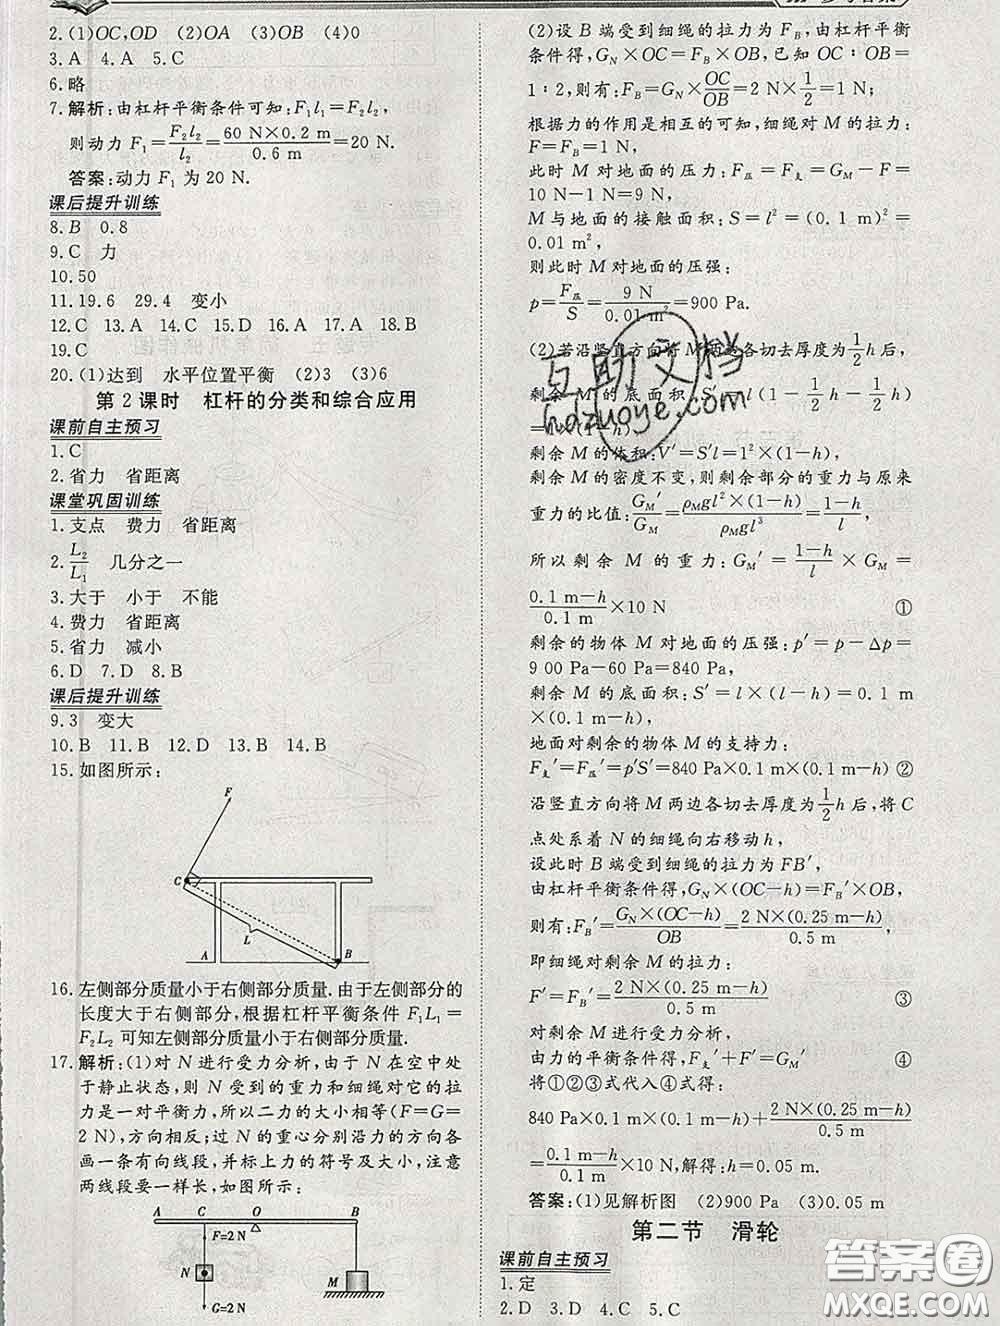 2.(1)OC,OD (2)OA (3)OB (4)0
3.A 4.A 5.C
6.略
7.解析:由杠杆平衡条件可知:F₁l₁=F₂l₂,
则动力 F₁=F₂l₂/l₂=60 N×0.2 m/0.6 m=20 N.
答案:动力 F₁ 为 20 N.
课后提升训练
8.B 0.8
9.C 力
10.50
11.19.6 29.4 变小
12.C 13.A 14.C 15.D 16.A 17.A 18.B
19.C
20.(1)达到 水平位置平衡 (2)3 (3)6
第2课时 杠杆的分类和综合应用
课前自主预习
1.C
2.省力 省距离
课堂巩固训练
1.支点 费力 省距离
2.L₂/L₁ 几分之一
3.大于 小于 不能
4.费力 省距离
5.省力 减小
6.D 7.D 8.B
课后提升训练
9.3 变大
10.B 11.B 12.D 13.B 14.B
15.如图所示:
F
C
L
A
B
16.左侧部分质量小于右侧部分质量.由于左侧部分的
长度大于右侧部分,根据杠杆平衡条件 F₁L₁=
F₂L₂ 可知左侧部分质量小于右侧部分质量.
17.解析:(1)对 N 进行受力分析,由于 N 在空中处
于静止状态,则 N 受到的重力和细绳对它的拉
力是一对平衡力,所以二力的大小相等(F=G=
2 N),方向相反;过 N 的重心分别沿力的方向各
画一条有向线段,并标上力的符号及大小,注意
两线段要一样长,如图所示:
A C O B
F=2 N
N
M
G=2 N
(2)设 B 端受到细绳的拉力为 F_B,由杠杆平衡
条件得,G_N×OC=F_B×OB,已知 OC∶OB=
1∶2,则有:F_B=G_N×OC/OB=2 N×1/2=1 N;
根据力的作用是相互的可知,细绳对 M 的拉力:
F=F_B=1 N,
此时 M 对地面的压力:F压=F支=G_M-F=
10 N-1 N=9 N,
M 与地面的接触面积:S=l²=(0.1 m)²=
0.01 m²,
则此时 M 对地面的压强:
p=F压/S=9 N/0.01 m²=900 Pa.
(2)若沿竖直方向将 M 两边各切去厚度为1/2h后,
剩余 M 的底面积:S′=l(l-1/2h-1/2h)
=l×(l-h)
剩余 M 的体积:V′=S′l=l²×(l-h)
剩余 M 的密度不变,则剩余部分的重力与原来
重力的比值:G_M′/G_M=ρ_Mgl²×(l-h)/ρ_Mgl³=l-h/l,
所以剩余 M 的重力:G_M′=l-h/l×G_M=
0.1 m-h/0.1 m×10 N ①
剩余的物体 M 对地面的压强:p′=p-Δp=
900 Pa-60 Pa=840 Pa,
剩余 M 的底面积:S′=l×(l-h)=0.1 m
×(0.1 m-h),
地面对剩余的物体 M 的支持力:
F支′=F压′=p′S′=840 Pa×0.1 m×(0.1 m-h) ②
沿竖直方向将 M 两边各切去厚度为1/2h后,将 C
点处系着 N 的细绳向右移动 h,
设此时 B 端受到细绳的拉力为 FB′,
由杠杆平衡条件得,G_N×(OC-h)=F_B′×OB,
则有:F_B′=G_N×(OC-h)/OB=2 N×(0.25 m-h)/0.5 m,
即细绳对剩余 M 的拉力:
F′=F_B′=2 N×(0.25 m-h)/0.5 m ③
对剩余 M 进行受力分析,
由力的平衡条件得,F支′+F′=G_M′ ④
将①②③式代入④式得:
840 Pa×0.1 m×(0.1 m-h)+2 N×(0.25 m-h)/0.5 m
=0.1 m-h/0.1 m×10 N,解得:h=0.05 m.
答案:(1)见解析图 (2)900 Pa (3)0.05 m
第二节 滑轮
课前自主预习
1.定
2.D 3.D 4.C 5.C
互助文档
hdzuoye.com
答案圈
MXQE.COM